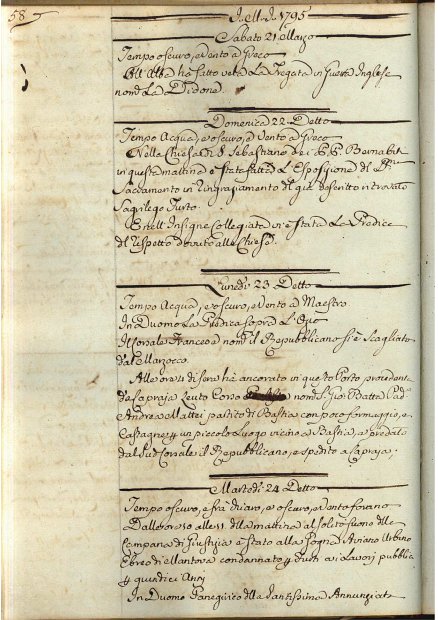 58
J. M. J. 1795
Sabato 21 Marzo
Tempo oscuro, e Vento a Greco
All'Alba ha fatto vela La Fregata in Guerra Inglese
nom.ta La Didone.
Domenica 22 Detto
Tempo Acqua, e oscuro, e Vento a Greco
Nella Chiesa di S. Sebastiano dei P.P. Bernabiti
in questa mattina è stata fatta L'Esposizione del
Sacramento in ringraziamento del già descritto ritrovato
Sagrilego Furto.
E nell'Insigne Collegiata vi è stata La Predica
del rispetto dovuto alle Chiese.
Lunedì 23 Detto
Tempo Acqua, e oscuro, e Vento a Maestro
In Duomo La Predica sopra L'
Il Corsale Francese nom.to il Repubblicano si è scagliato
dal Marzocco.
Alle ore di sera hà ancorato in questo Porto, procedente
da Capraja Leuto Corso nom.to S. Gio: Batta Cap.
Andrea Mattei partito di Bastia con poco formaggio, e
Castagne p. un piccolo Luogo vicino a Bastia, e predato
dal Sud.to Corsale il Repubblicano, e spedito a Capraja.
Martedì 24 Detto
Tempo oscuro, e fra chiaro, e oscuro, e Vento forano
Dalle ore 10 alle 11 della mattina al solito suono della
Campana di Giustizia è stato alla Gogna Urbino
Ebreo di Mantova condannato p. Furti a i Lavori pubblici
p. quindici Anni
In Duomo Panegirico della Santissima Annunziata